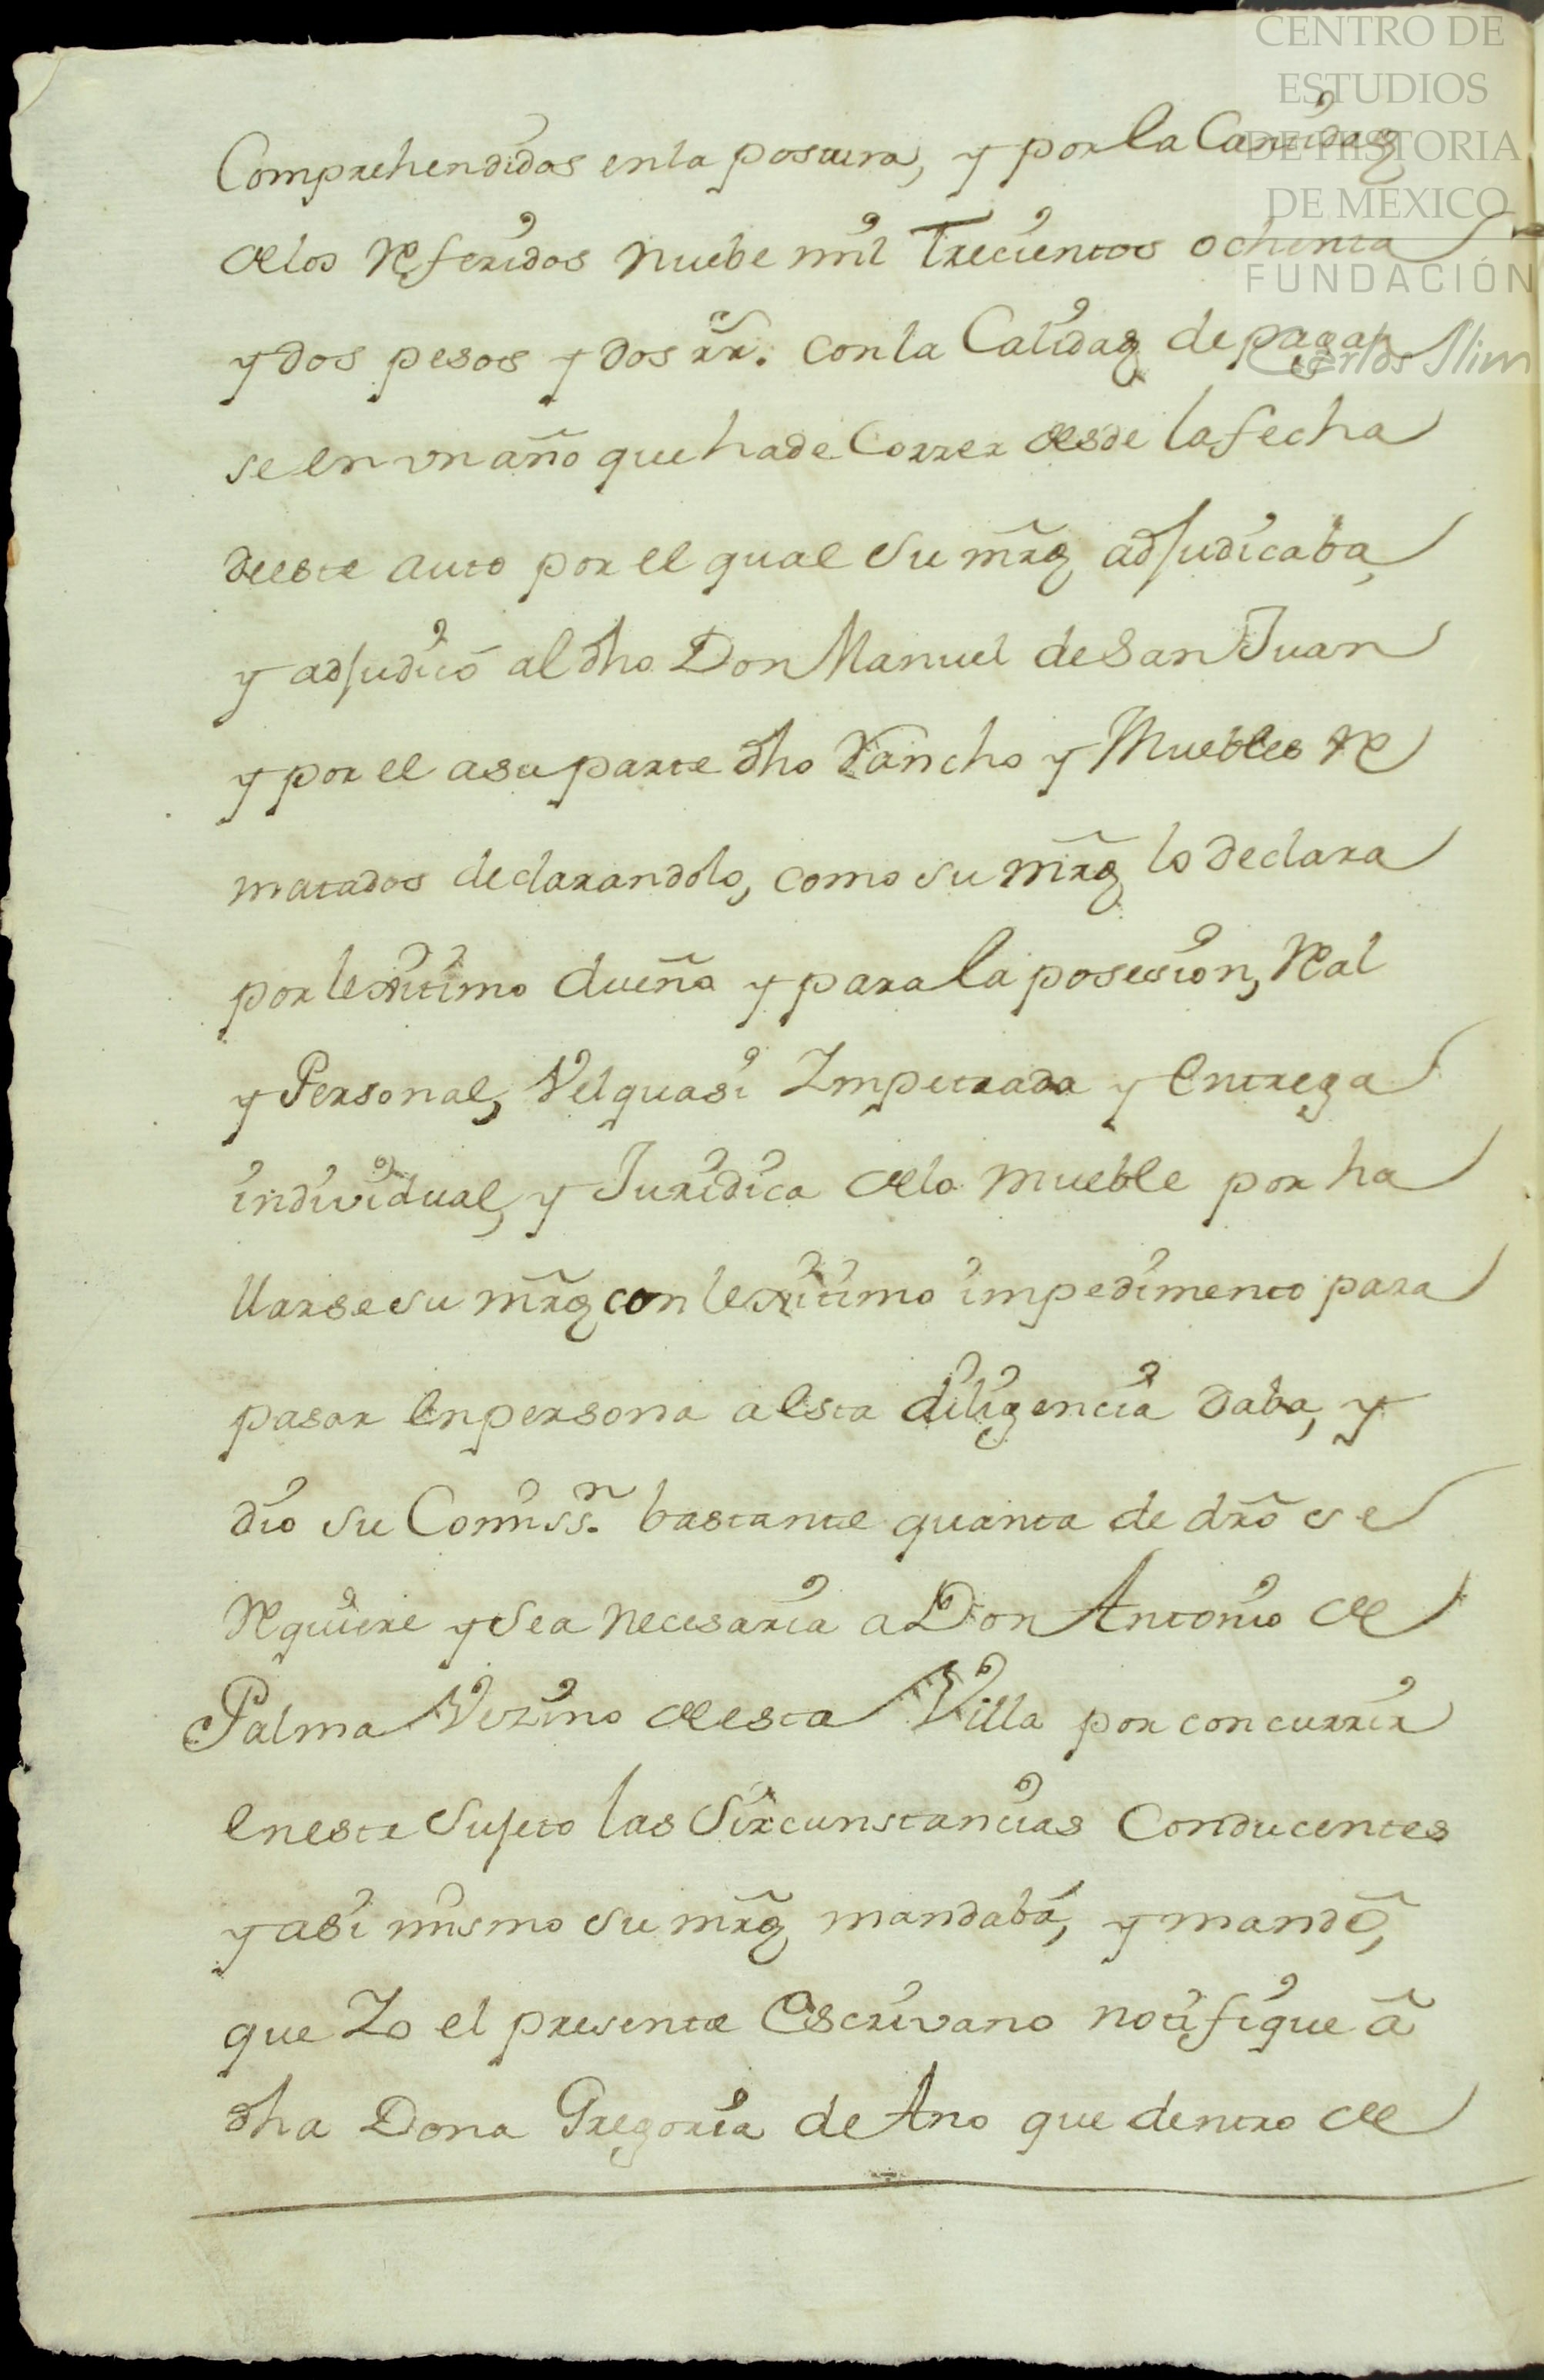 CENTRO DE
ESTUDIOS
DE HISTORIA
DE MÉXICO
FUNDACIÓN
Carlos Slim
Comprehendidos en la postura, y por la Cantidad
de los Referidos nuebe mil Trecientos ochenta
y dos pesos y dos rr.ˢ con la Calidad de pagar
se en vn año que ha de Correr desde la fecha
de este auto por el qual su mr̃d adjudicaba,
y adjudicó al dho Don Manuel de San Juan
y por el a su parte dho Rancho y Muebles Re
matados declarandolo, como su mr̃d lo declara
por lexitimo dueño y para la posesion, Real
y Personal, Vel quasi Impetrada y Entrega
individual, y Juridica de lo mueble por ha
llarse su mr̃d con lexitimo impedimento para
pasar en persona a esta diligencia daba, y
dio su Comiss.ⁿ bastante quanta de dr̃o se
Requiere y sea necesaria a Don Antonio de
Palma Vezino de esta Villa por concurrir
en este sujeto las Sircunstancias Conducentes
y asi mismo su mr̃d mandabá, y mandó,
que Yo el presente Escrivano notifique ã
dha Dona Gregoria de Ano que dentro de